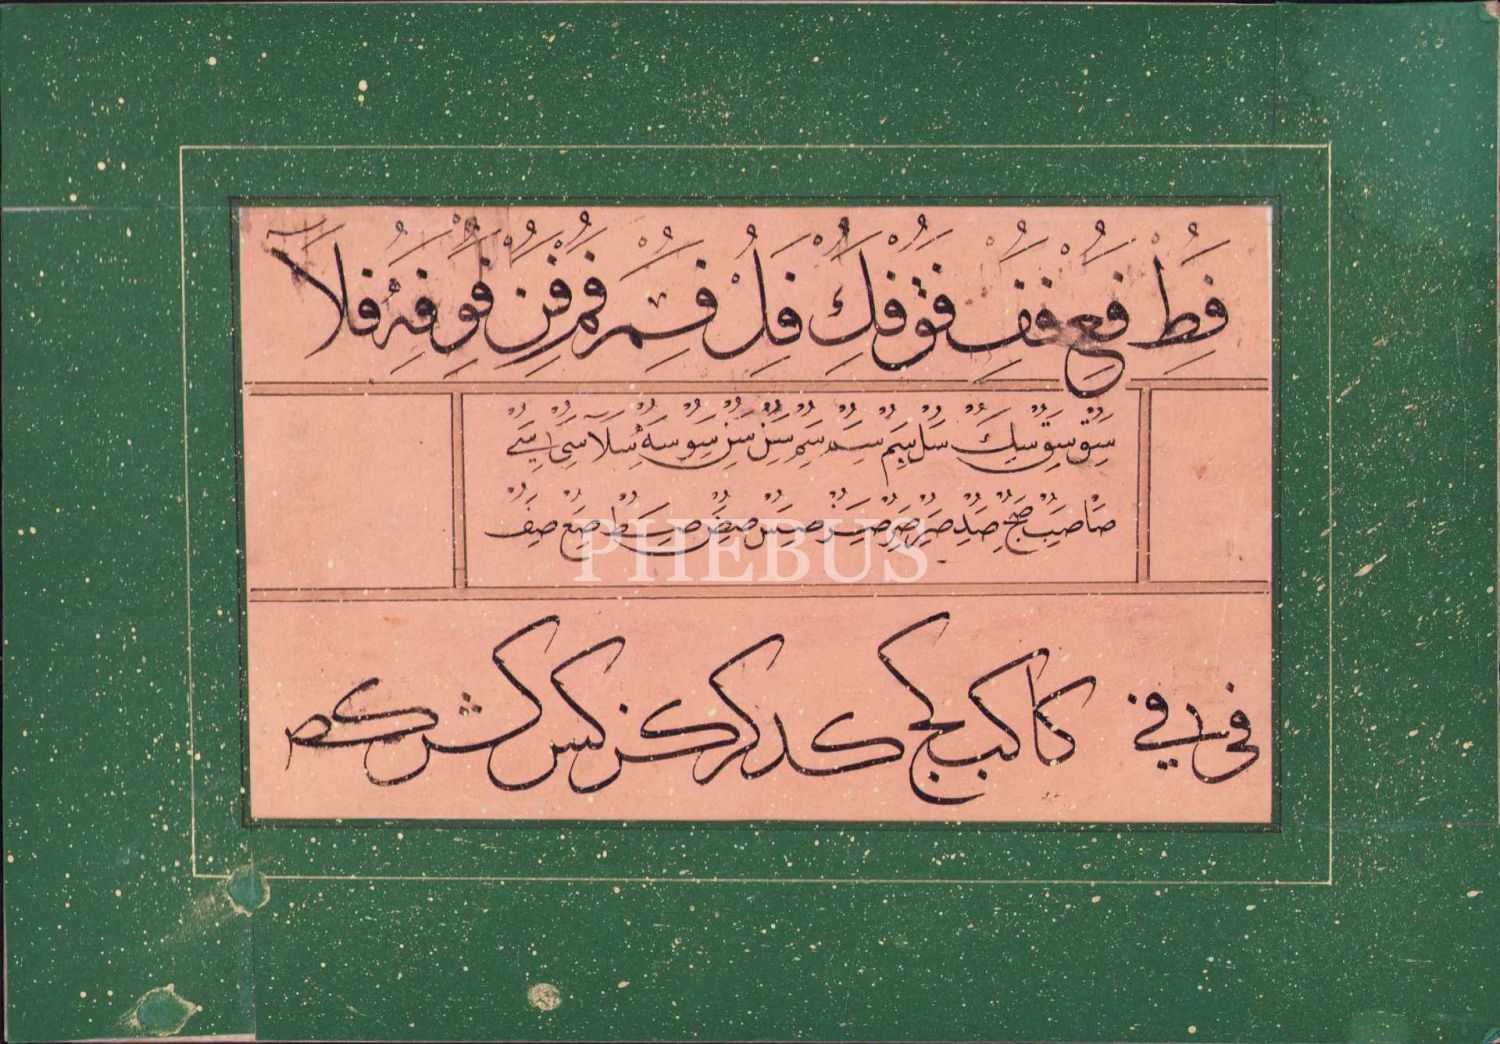 فط فع فف فق فك فل فم فم فن فو فه فلا
سق سق سك سل سم سم سم سن سن سو سه سلا سى سى
صا صب صح صد صر صر صس صص صط صع صف
PHEBUS
فى فى كا كب كج كد كر كر كس كش كص